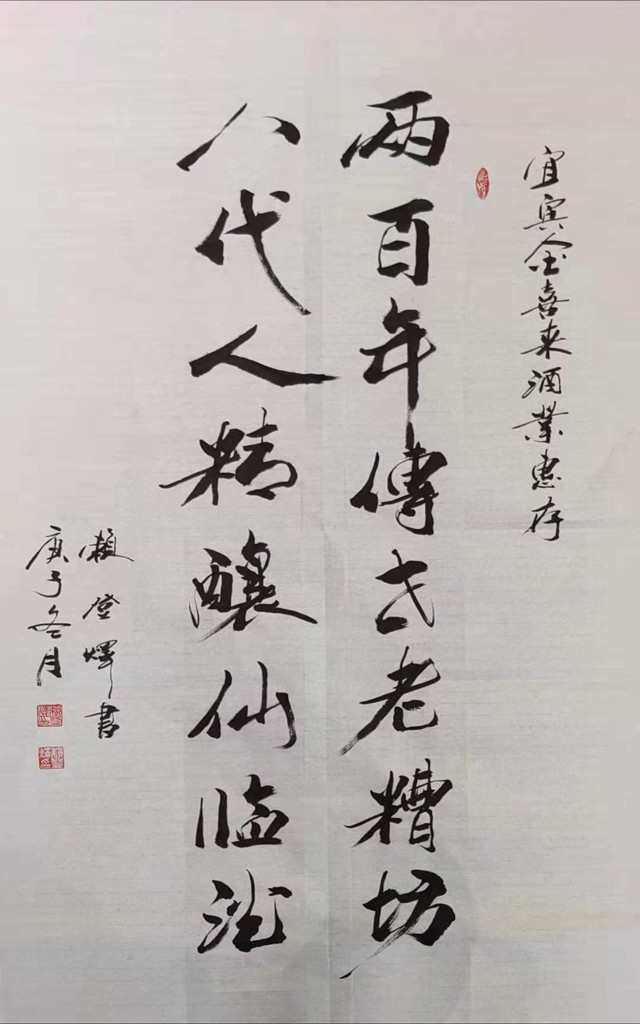 宜宾金喜来酒业惠存
两百年傳世老糟坊
八代人精釀仙临池
赖登辉書
庚子冬月